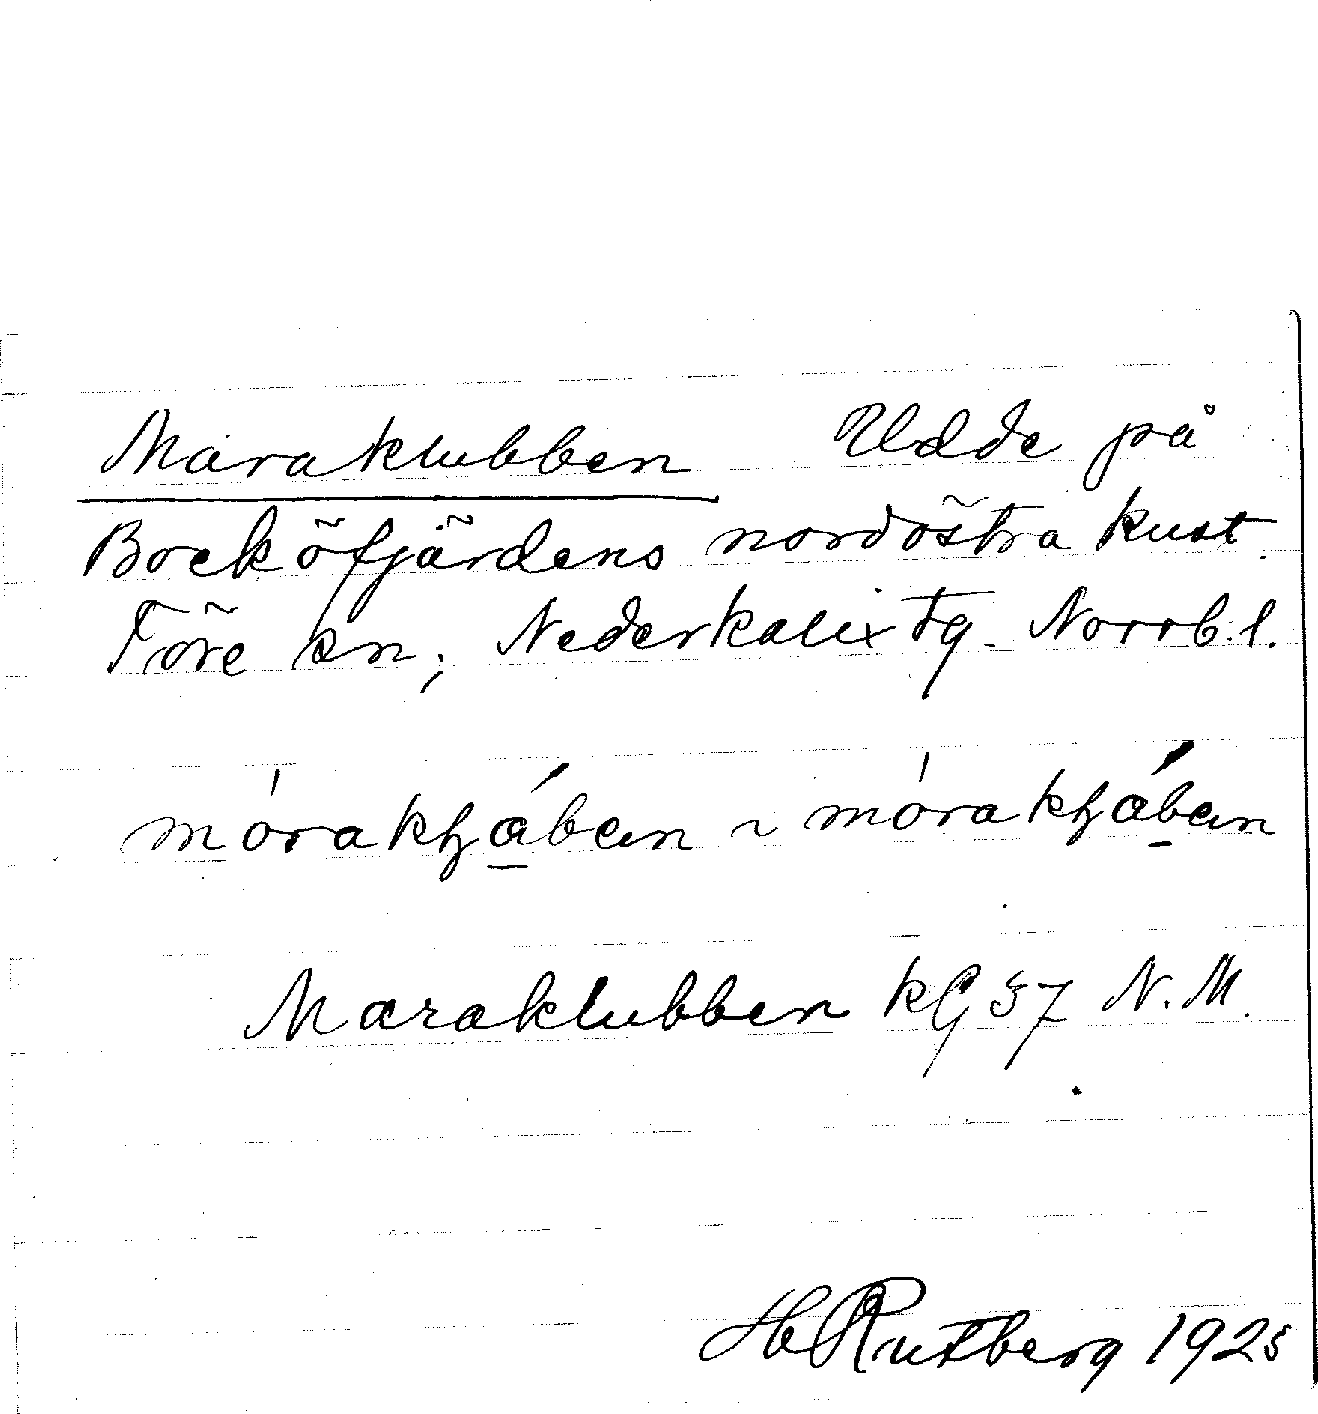 Maraklubben Udde på
Boeköfjärdens nordöstra kust.
Töre sn; Nederkalix tg. Norrb. l.
mórakɫában ~ mórakɫában
Maraklubben kG 57 N.M.
H Rutberg 1925